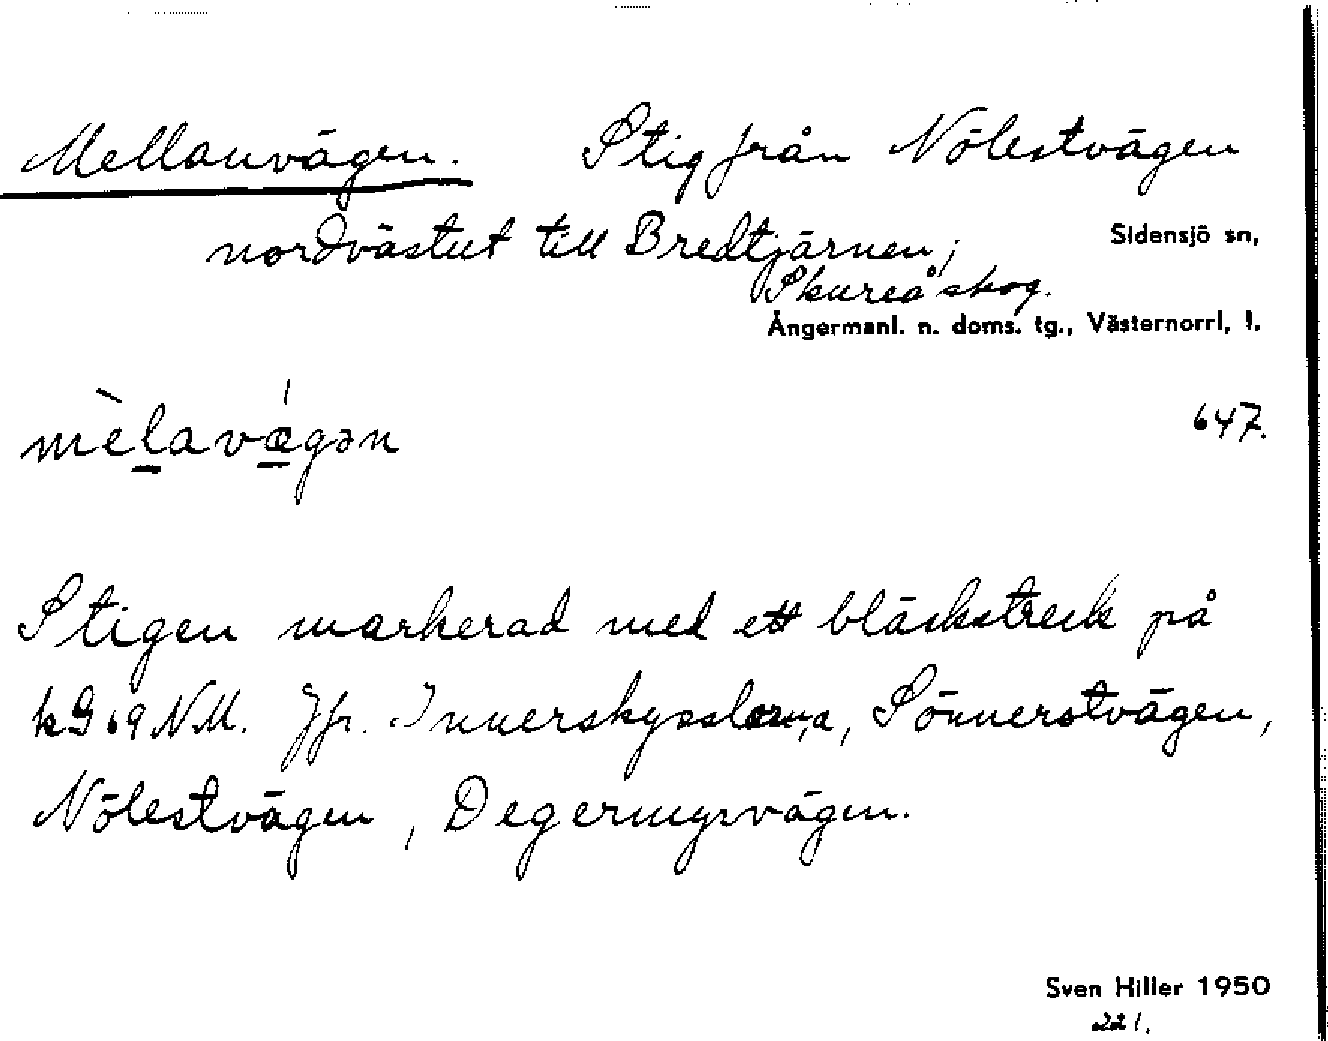 Mellanvägen. Stig från Nölestvägen
nordvästut till Bredtjärnen,
Sidensjö sn,
Skureåskog.
Ångermanl. n. doms. tg., Västernorrl, l.
mèlavǽgən
647.
Stigen markerad med ett bläckstreck på
kG 69 NM. Jfr. Innerskysslorna, Sönnerstvägen,
Nölestvägen, Degermyrvägen.
Sven Hiller 1950